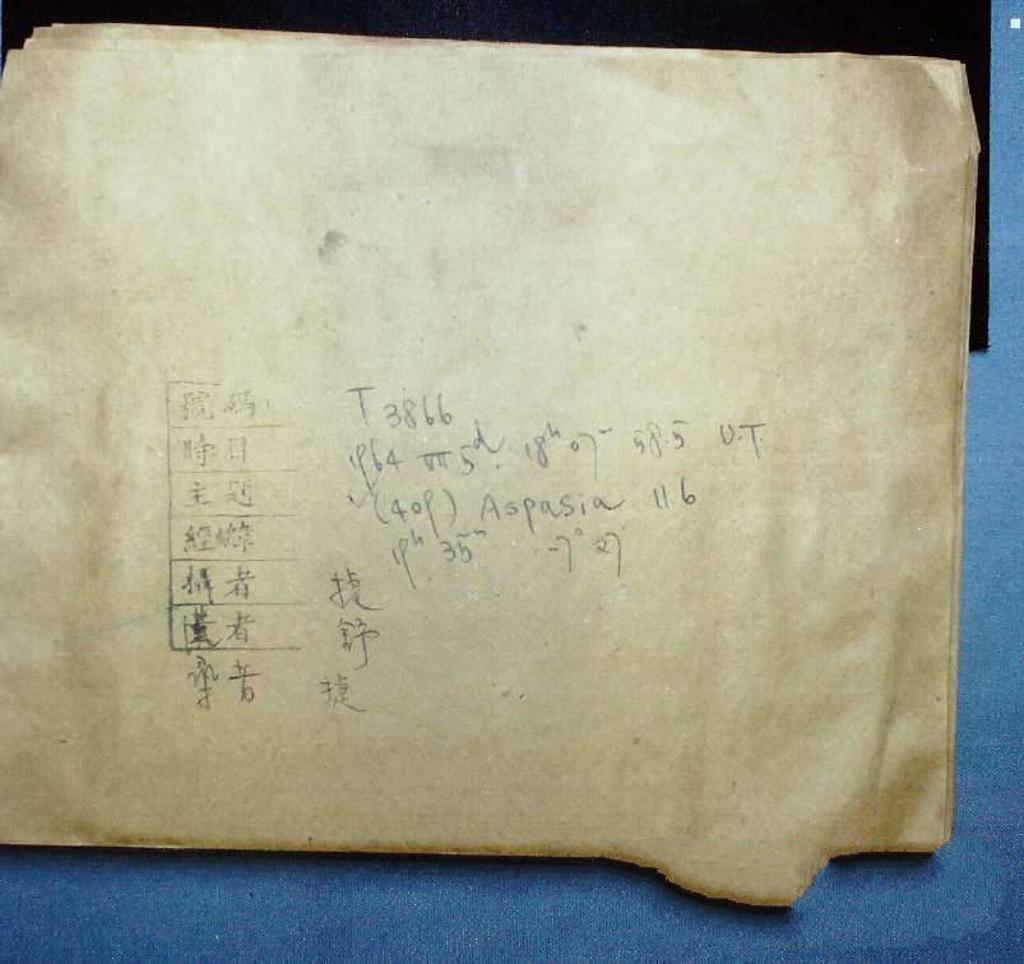 號碼 T 3866
時日 1964 VII 5d. 18h 07m 58.5 U.T.
主題 (409) Aspasia 11.6
經緯 19h 35m -7° 27'
攝者
者 舒
者